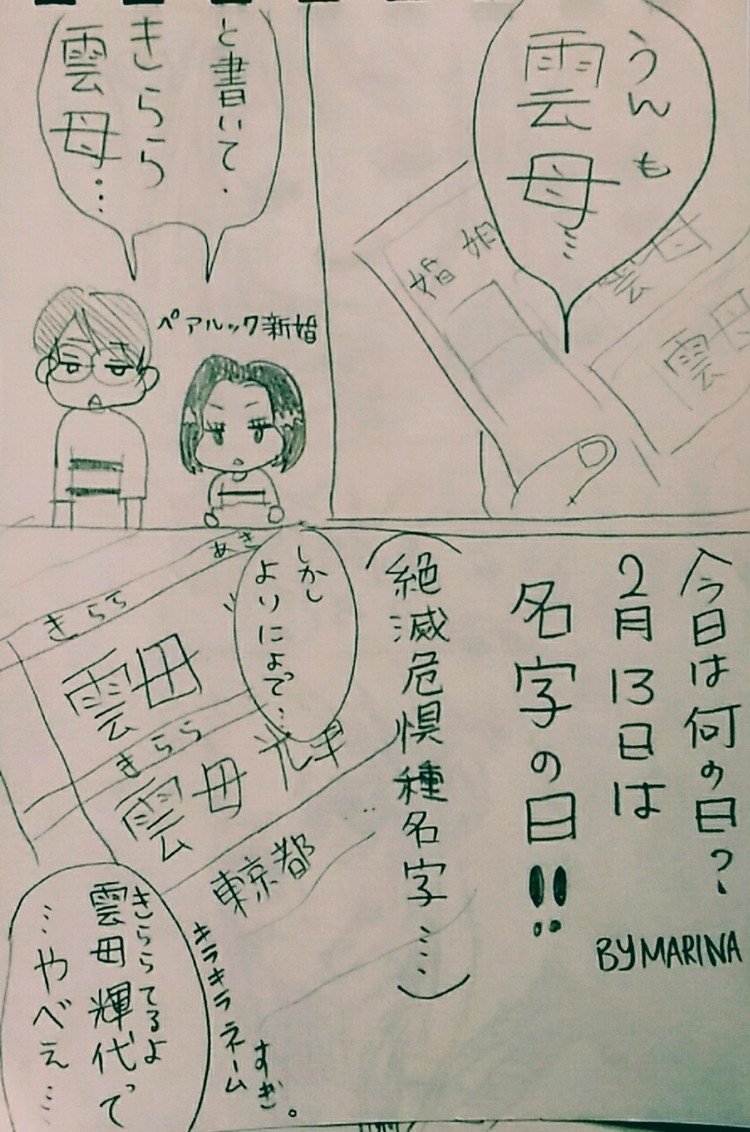 うんも
雲母…
婚姻
雲母
雲母
と書いて・
きらら
雲母…
ペアルック新婚
今日は何の日?
2月13日は
名字の日!!
(絶滅危惧種名字……)
BY MARINA
しかし
よりによって…
きらら あき
雲母
きらら
雲母 輝
東京都
きらら てるよ
雲母 輝代って
…やべぇ…
キラキラネーム
すぎ。